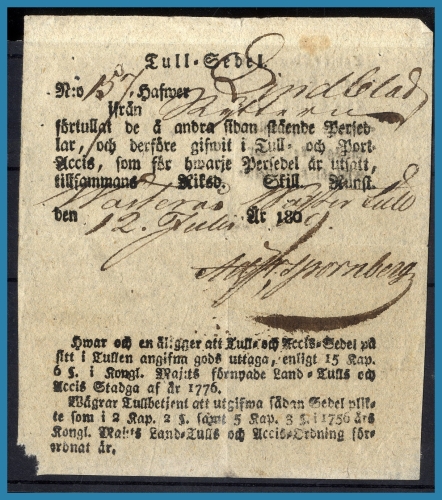 Tull-Sedel.
N:o 157 Hafwer Lindblad
ifrån
förtullat de å andra sidan stående Persed-
lar, och derföre gifwit i Tull- och Port-
Accis, som för hwarje Persedel är utsatt,
tillsammans Riksd. Skill Runst.
Westerås Tull
den 12 Julii År 180
Hwar och en åligger att Tull- och Accis-Sedel på
sitt i Tullen angifwa gods uttaga, enligt 15 Kap.
6 §. i Kongl. Maj:ts förnyade Land-Tulls och
Accis Stadga af år 1776.
Wägrar Tullbetjent att utgifwa sådan Sedel plik-
te som i 2 Kap. 2 §. samt 5 Kap. 3 §. i 1756 års
Kongl. Maj:ts Land-Tulls och Accis-Ordning för-
ordnat är.